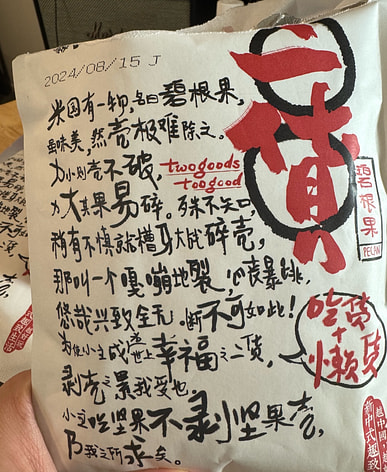 2024/08/15 J
米国有一物,名曰碧根果,
虽味美,然壳极难除之。
力小则壳不破
力大其果易碎。殊不知,
稍有不慎就槽牙大战碎壳,
那叫一个嘎嘣地裂,肉丧暴跳,
悠哉兴致全无。断不可如此!
为使小主成为世上幸福之二货,
剥壳之累我受也,
小主吃坚果不剥坚果壳,
乃我之所求矣。
twogoods
toogood
二货
碧根果
PECAN
吃货
+
懒货
新中式趣致